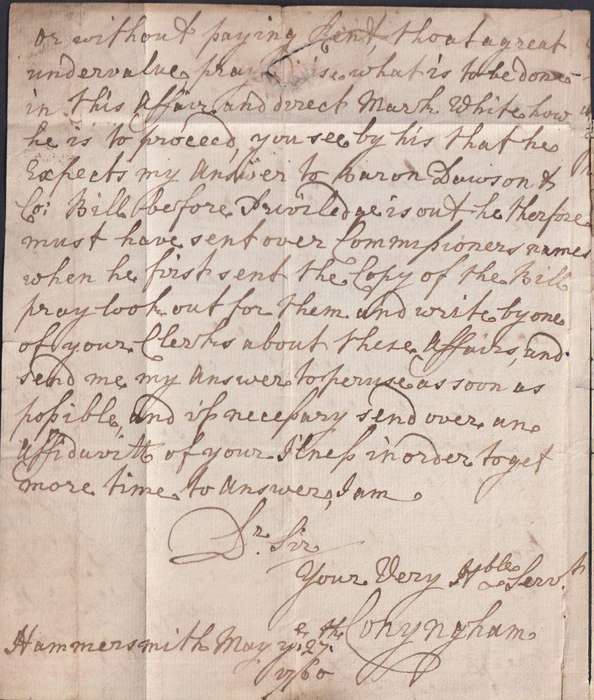 or without paying Rent, tho at a great
undervalue, pray what is to be done
in this Affair and direct Mark White how
he is to proceed, you see by his that he
Expects my Answer to Baron Dawson &
Co: Bill before Priviledge is out he therfore
must have sent over Commissioners names
when he first sent the Copy of the Bill
pray look out for them and write by one
of your Clerks about these Affairs, and
send me my Answer to peruse as soon as
possible, and if necessary send over an
Affidavitt of your Ilness in order to get
more time to Answer, I am
Dr. Sir
Your Very Hble Servt
Conyngham
Hammersmith May ye 27th
1760